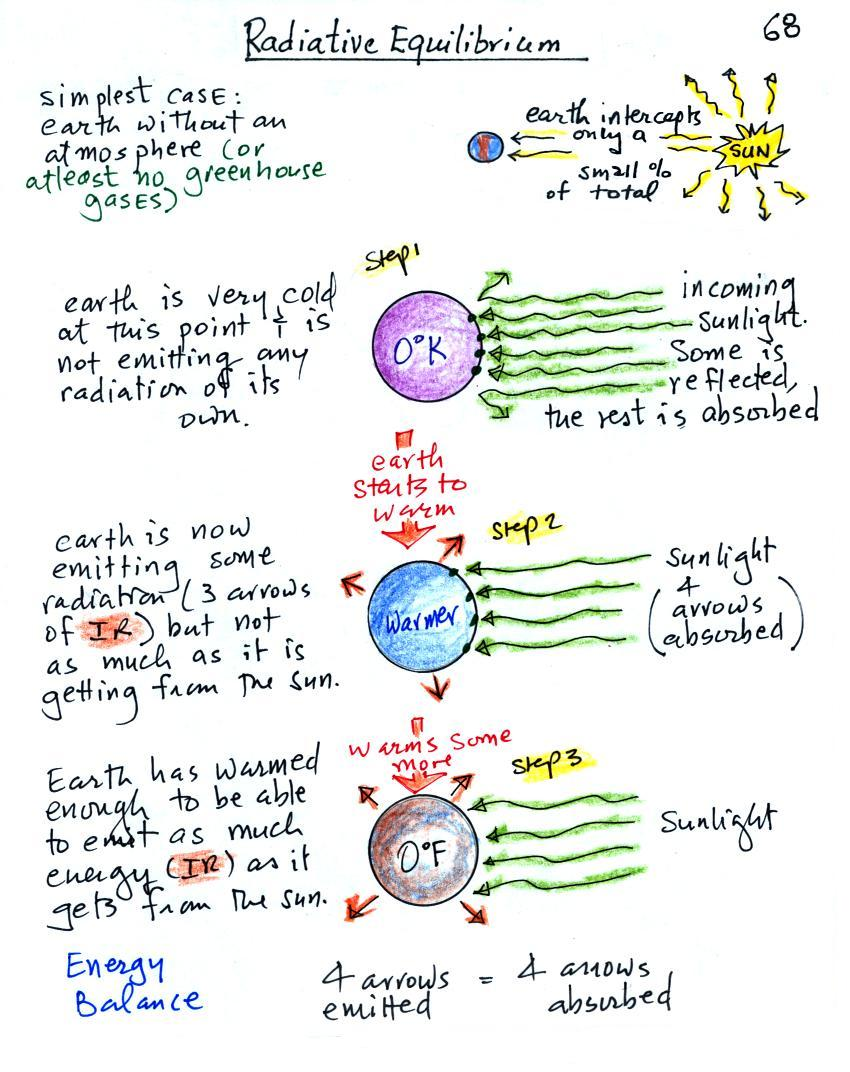 Radiative Equilibrium
68
simplest case:
earth without an
atmosphere (or
atleast no greenhouse
gases)
earth intercepts
only a
small %
of total
SUN
Step 1
earth is very cold
at this point & is
not emitting any
radiation of its
own.
0°K
incoming
sunlight.
Some is
reflected,
the rest is absorbed
earth
starts to
warm
Step 2
earth is now
emitting some
radiation (3 arrows
of IR) but not
as much as it is
getting from the sun.
Warmer
Sunlight
4
arrows
absorbed)
warms some
more
Step 3
Earth has warmed
enough to be able
to emit as much
energy (IR) as it
gets from the sun.
0°F
Sunlight
Energy
Balance
4 arrows = 4 arrows
emitted absorbed